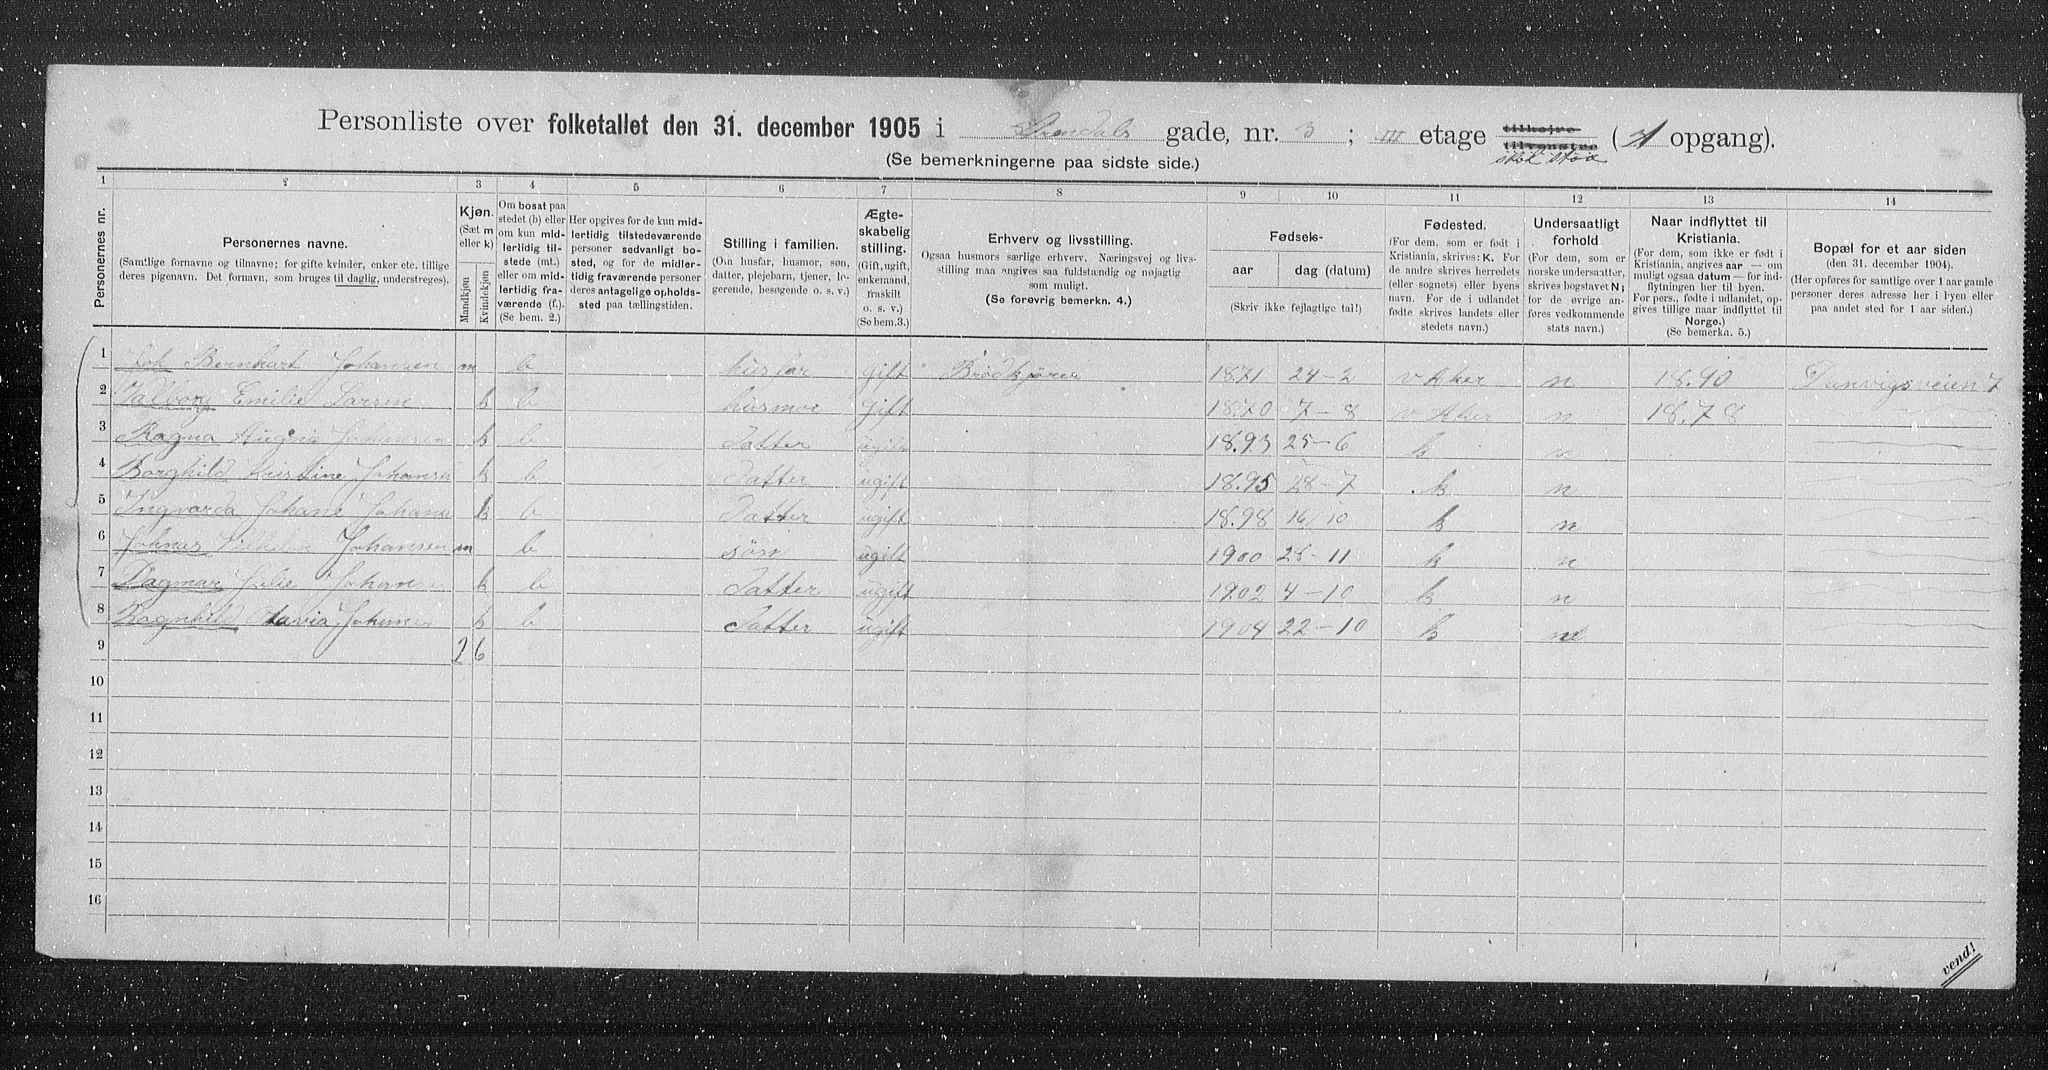 Personliste over folketallet den 31. december 1905 i Arendals gade, nr. 3 ; III etage tilhøjre tilvenstre (A opgang).
(Se bemerkningerne paa sidste side.)
1 2 3 4 5 6 7 8 9 10 11 12 13 14
Personernes nr.
Personernes navne.
(Samtlige fornavne og tilnavne; for gifte kvinder, enker etc. tillige
deres pigenavn. Det fornavn, som bruges til daglig, understreges).
Kjøn.
(Sæt m
eller k)
Mandkjøn
Kvindekjøn
Om bosat paa
stedet (b) eller
om kun mid-
lertidig til-
stede (mt.)
eller om mid-
lertidig fra-
værende (f.).
(Se bem. 2.)
Her opgives for de kun mid-
lertidig tilstedeværende
personer sedvanlig bo-
sted, og for de midler-
tidig fraværende personer
deres antagelige opholds-
sted paa tællingstiden.
Stilling i familien.
(Om husfar, husmor, søn,
datter, plejebarn, tjener, lo-
gerende, besøgende o. s. v.)
Ægte-
skabelig
stilling.
(Gift, ugift,
enkemand,
fraskilt
o. s. v.)
(Se bem.3.)
Erhverv og livsstilling.
Ogsaa husmors særlige erhverv. Næringsvej og livs-
stilling maa angives saa fuldstændig og nøjagtig
som muligt.
(Se forøvrig bemerkn. 4.)
Fødsels-
aar
dag (datum)
(Skriv ikke fejlagtige tal!)
Fødested.
(For dem, som er født i
Kristiania, skrives: K. For
de andre skrives herredets
(eller sognets) eller byens
navn. For de i udlandet
fødte skrives landets eller
stedets navn.)
Undersaatligt
forhold.
(For dem, som er
norske undersaatter,
skrives bogstavet N;
for de øvrige an-
føres vedkommende
stats navn.)
Naar indflyttet til
Kristiania.
(For dem, som ikke er født i
Kristiania, angives aar — om
muligt ogsaa datum — for ind-
flytningen her til byen.
For pers., fødte i udlandet, op-
gives tillige naar indflyttet til
Norge.)
(Se bemerkn. 5.)
Bopæl for et aar siden
(den 31. december 1904).
(Her opføres for samtlige over 1 aar gamle
personer deres adresse her i byen eller
paa andet sted for 1 aar siden.)
1 Joh Bernhart Johansen m b husfar gift Brødkjører 1871 24-2 v Aker n 1890 Damvigsveien 7
2 Valborg Emilie Larsen k b husmor gift 1870 7-8 v Aker n 1878
3 Ragna Johansen k b Datter ugift 1893 25-6 k n
4 Borghild Kristine Johansen k b Datter ugift 1895 28-7 k n
5 Ingvarda Johane Johanse k b Datter ugift 1898 16/10 k n
6 Johnas Vilhelm Johansen m b søn ugift 1900 28-11 k n
7 Dagmar Julie Johansen k b Datter ugift 1902 4-10 k n
8 Ragnhild Johansen k b Datter ugift 1904 22-10 k n
9 2 6
10
11
12
13
14
15
16
vend!